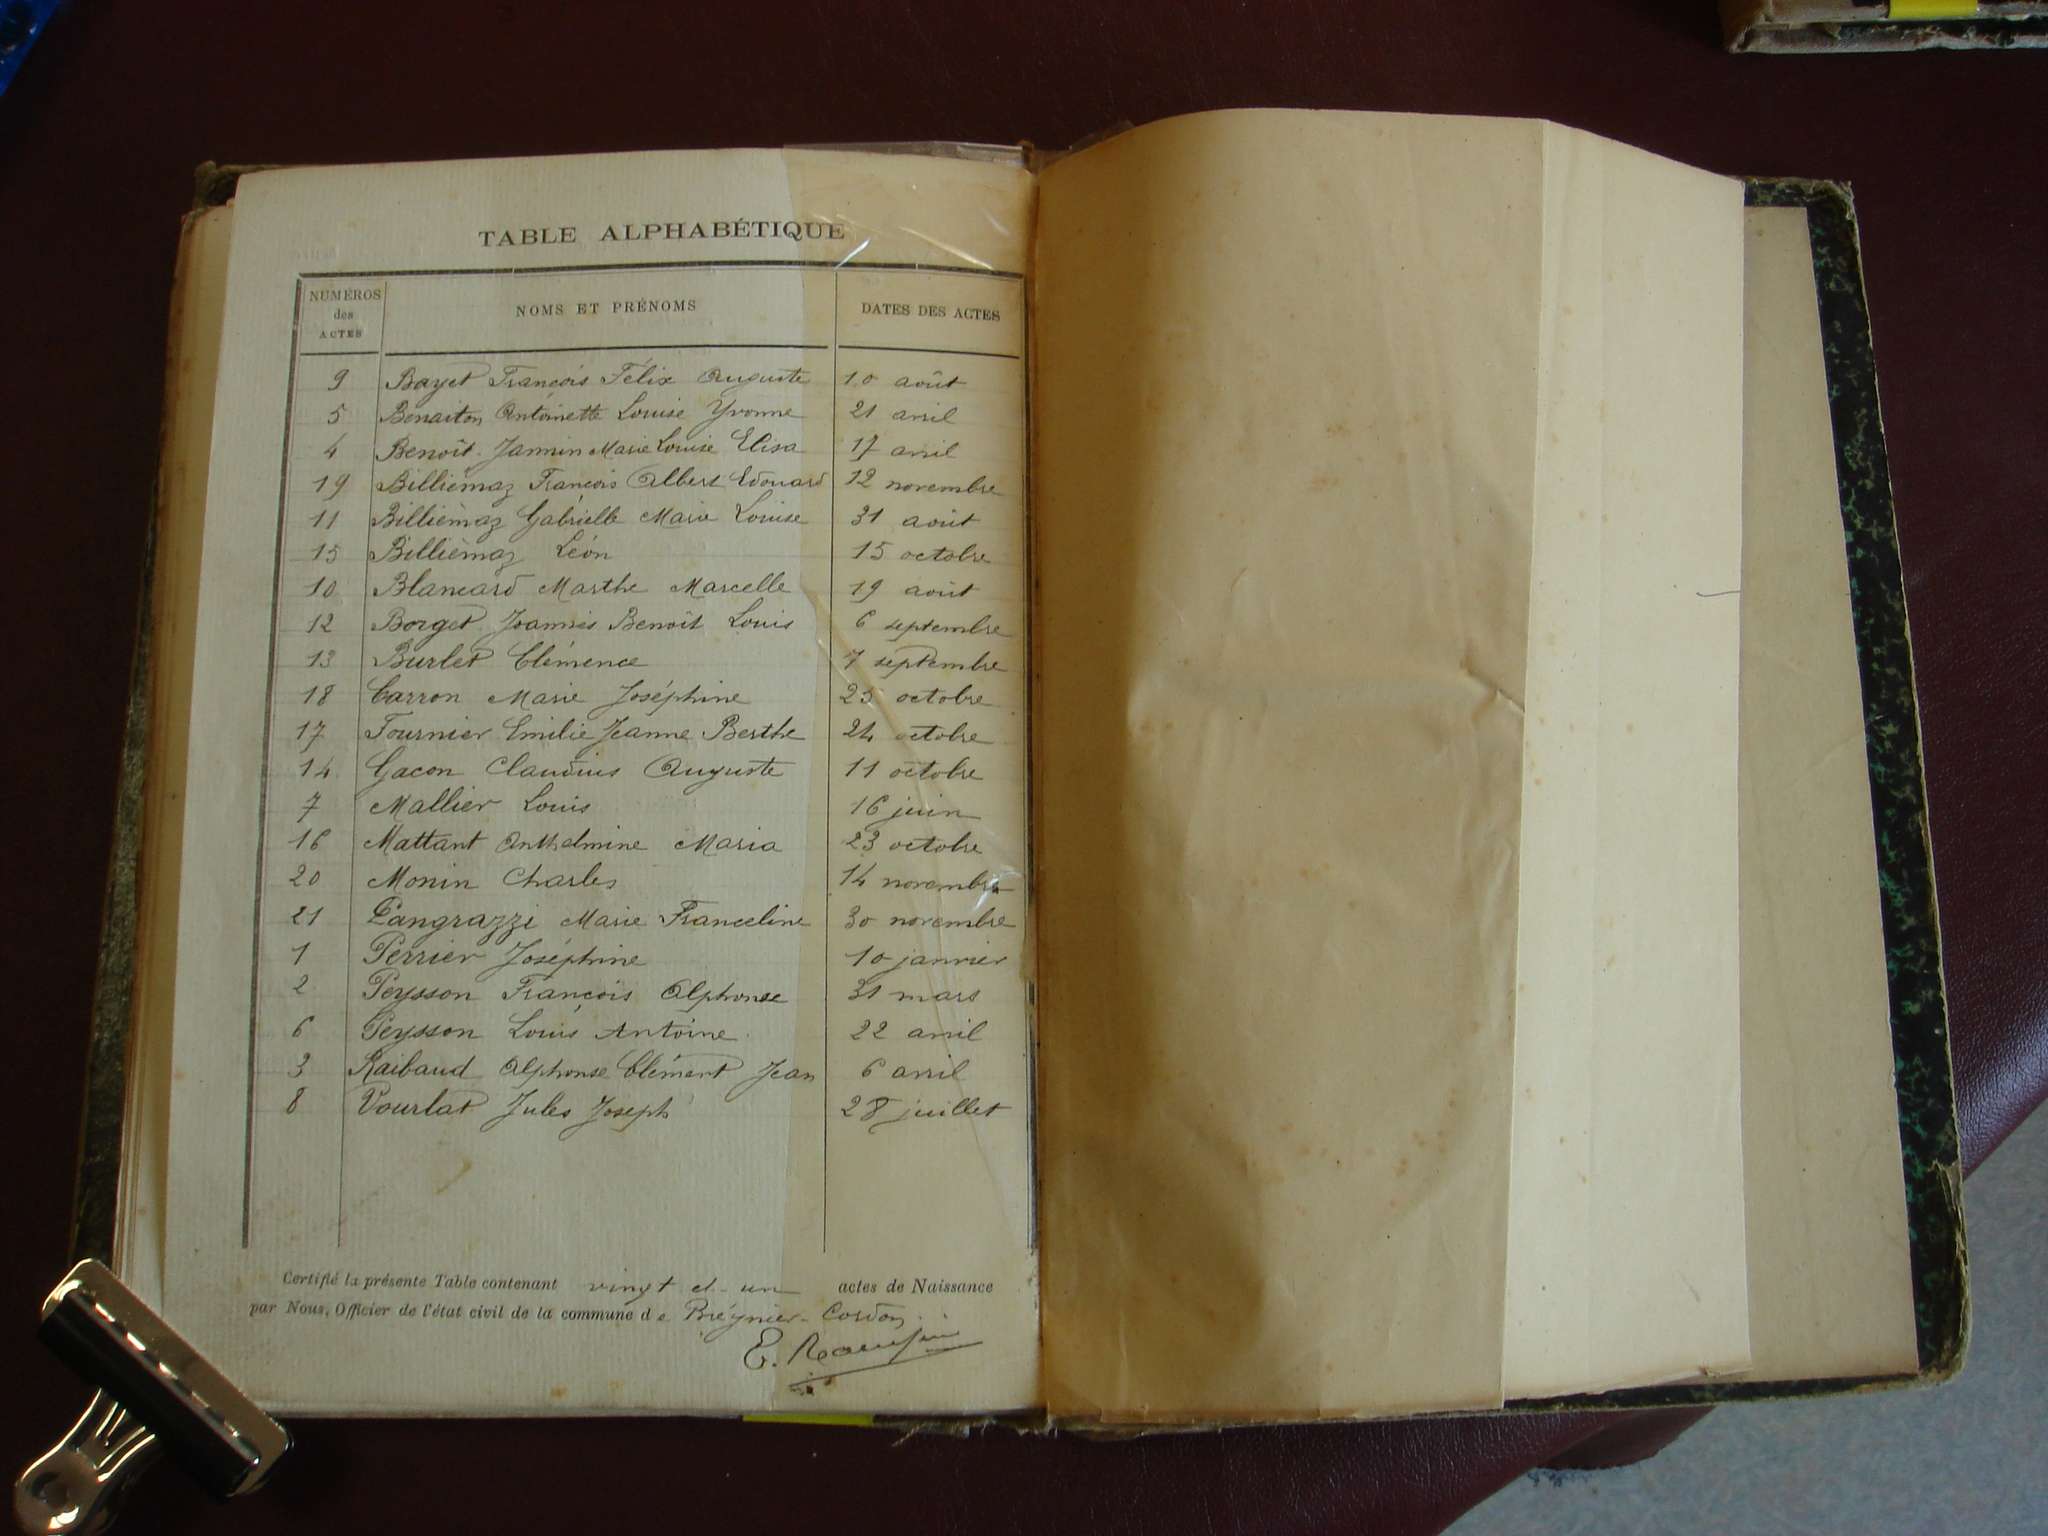 TABLE ALPHABÉTIQUE
NUMÉROS des ACTES NOMS ET PRÉNOMS DATES DES ACTES
9 Bayet François Félix Auguste 10 août
5 Benaiton Antoinette Louise Yvonne 21 avril
4 Benoît-Jannin Marie Louise Elisa 17 avril
19 Billiémaz François Albert Edouard 12 novembre
11 Billiémaz Gabrielle Marie Louise 31 août
15 Billiémaz Léon 15 octobre
10 Blancard Marthe Marcelle 19 août
12 Borget Joannès Benoît Louis 6 septembre
13 Burlet Clémence 7 septembre
18 Carron Marie Joséphine 25 octobre
17 Fournier Emilie Jeanne Berthe 24 octobre
14 Gacon Claudius Auguste 11 octobre
7 Mallier Louis 16 juin
16 Mattant Anthelmine Maria 23 octobre
20 Monin Charles 14 novembre
21 Pangrazzi Marie Franceline 30 novembre
1 Perrier Joséphine 10 janvier
2 Peysson François Alphonse 31 mars
6 Peysson Louis Antoine 22 avril
3 Raibaud Alphonse Clément Jean 6 avril
8 Vourlat Jules Joseph 28 juillet
Certifié la présente Table contenant vingt et un actes de Naissance
par Nous, Officier de l'état civil de la commune de Brégnier-Cordon.
E.